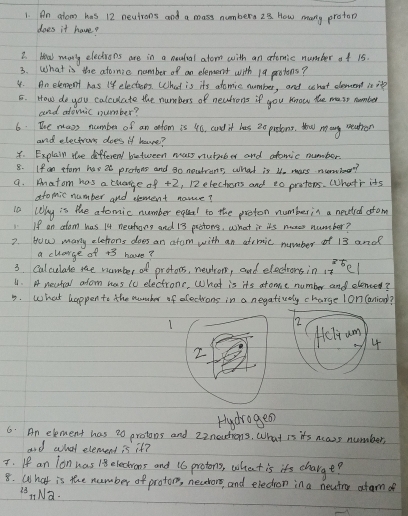 1. An atom has 12 neutrons and a mass number 23. How many proton
does it have?
2. How many electrons are in a neutral atom with an atomic number of 15.
3. What is the atomic number of an element with 19 protons?
4. An element has 14 electons. What is its atomic number, and what element is it?
5. How do you calculate the numbers of neutrons if you know the mass number
and atomic number?
6. The mass number of an atom is 40, and it has 20 protons. How many neutron
and electrons does it have?
7. Explain the different between mass number and atomic number.
8. If an atom has 26 protons and 30 neutrons, what is its mass number?
9. An atom has a charge of +2, 12 electrons and 20 protons. What is its
atomic number and element name?
10. Why is the atomic number equal to the proton number in a neutral atom
1. If an atom has 14 neutrons and 13 protons. what is its mass number?
2. How many eletrons does an atom with an atomic number of 13 and
a charge of +3 have?
3. Calculate the number of protons, neutrons, and electrons in 17 Cl
4. A neutral atom has 10 electrons, What is its atomic number and element?
5. What happen to the number of electrons in a negatively charge ION (anion)?
1
2
2
Helium
4
Hydrogen
6. An element has 20 protons and 22 neutrons. What is its mass number,
and what element is it?
7. If an ion has 18 electrons and 16 protons, what is its charge?
8. What is the number of protons, neutrons, and electron in a neutral atom of
23 11 Na.